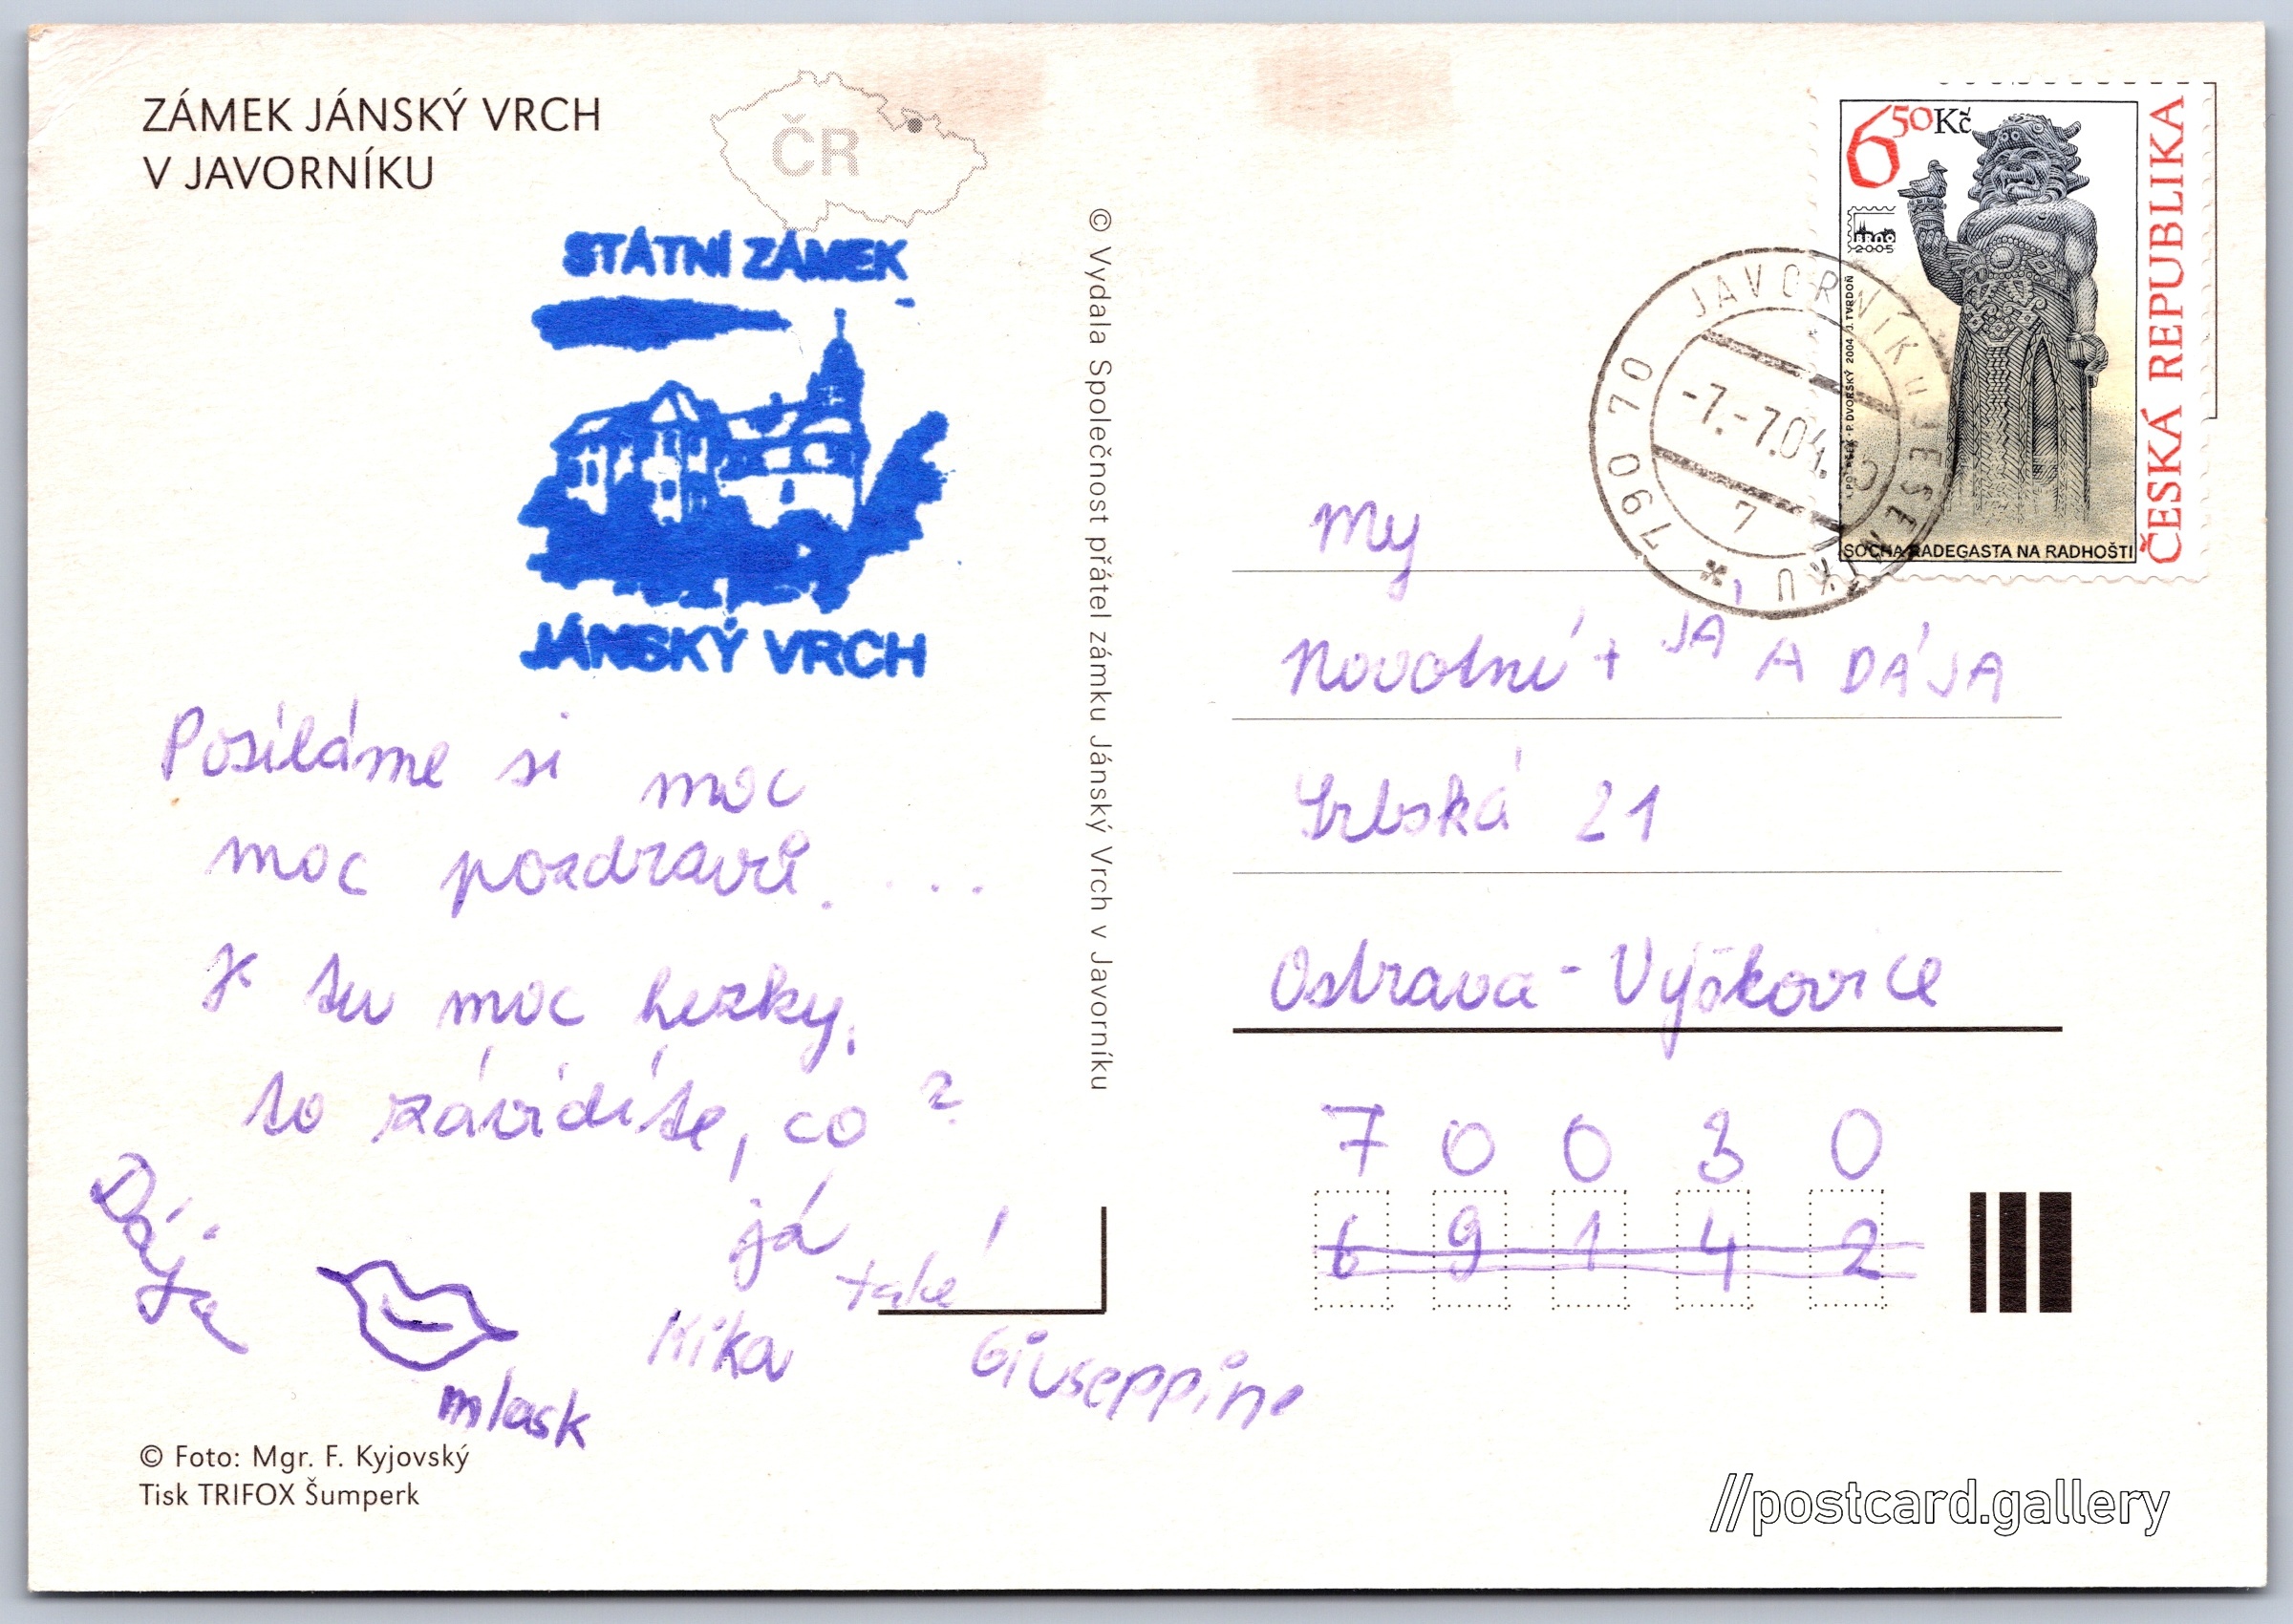 ZÁMEK JÁNSKÝ VRCH
V JAVORNÍKU
ČR
STÁTNÍ ZÁMEK
JÁNSKÝ VRCH
Posíláme si moc
moc pozdravů. ...
Je tu moc hezky.
to závidíte, co?
Dája
mlask
já také
Kika
Giuseppine
© Foto: Mgr. F. Kyjovský
Tisk TRIFOX Šumperk
© Vydala Společnost přátel zámku Jánský Vrch v Javorníku
6 50 Kč
BRNO
2005
J. TVRDOŇ
P. DVORSKÝ 2004
SOCHA RADEGASTA NA RADHOŠTI
ČESKÁ REPUBLIKA
790 70 JAVORNÍK U JESENÍKU 1
-7.-7.04.
7
My
Novotní + JÁ A DÁJA
Srbská 21
Ostrava - Výškovice
7 0 0 3 0
6 9 1 4 2
//postcard.gallery